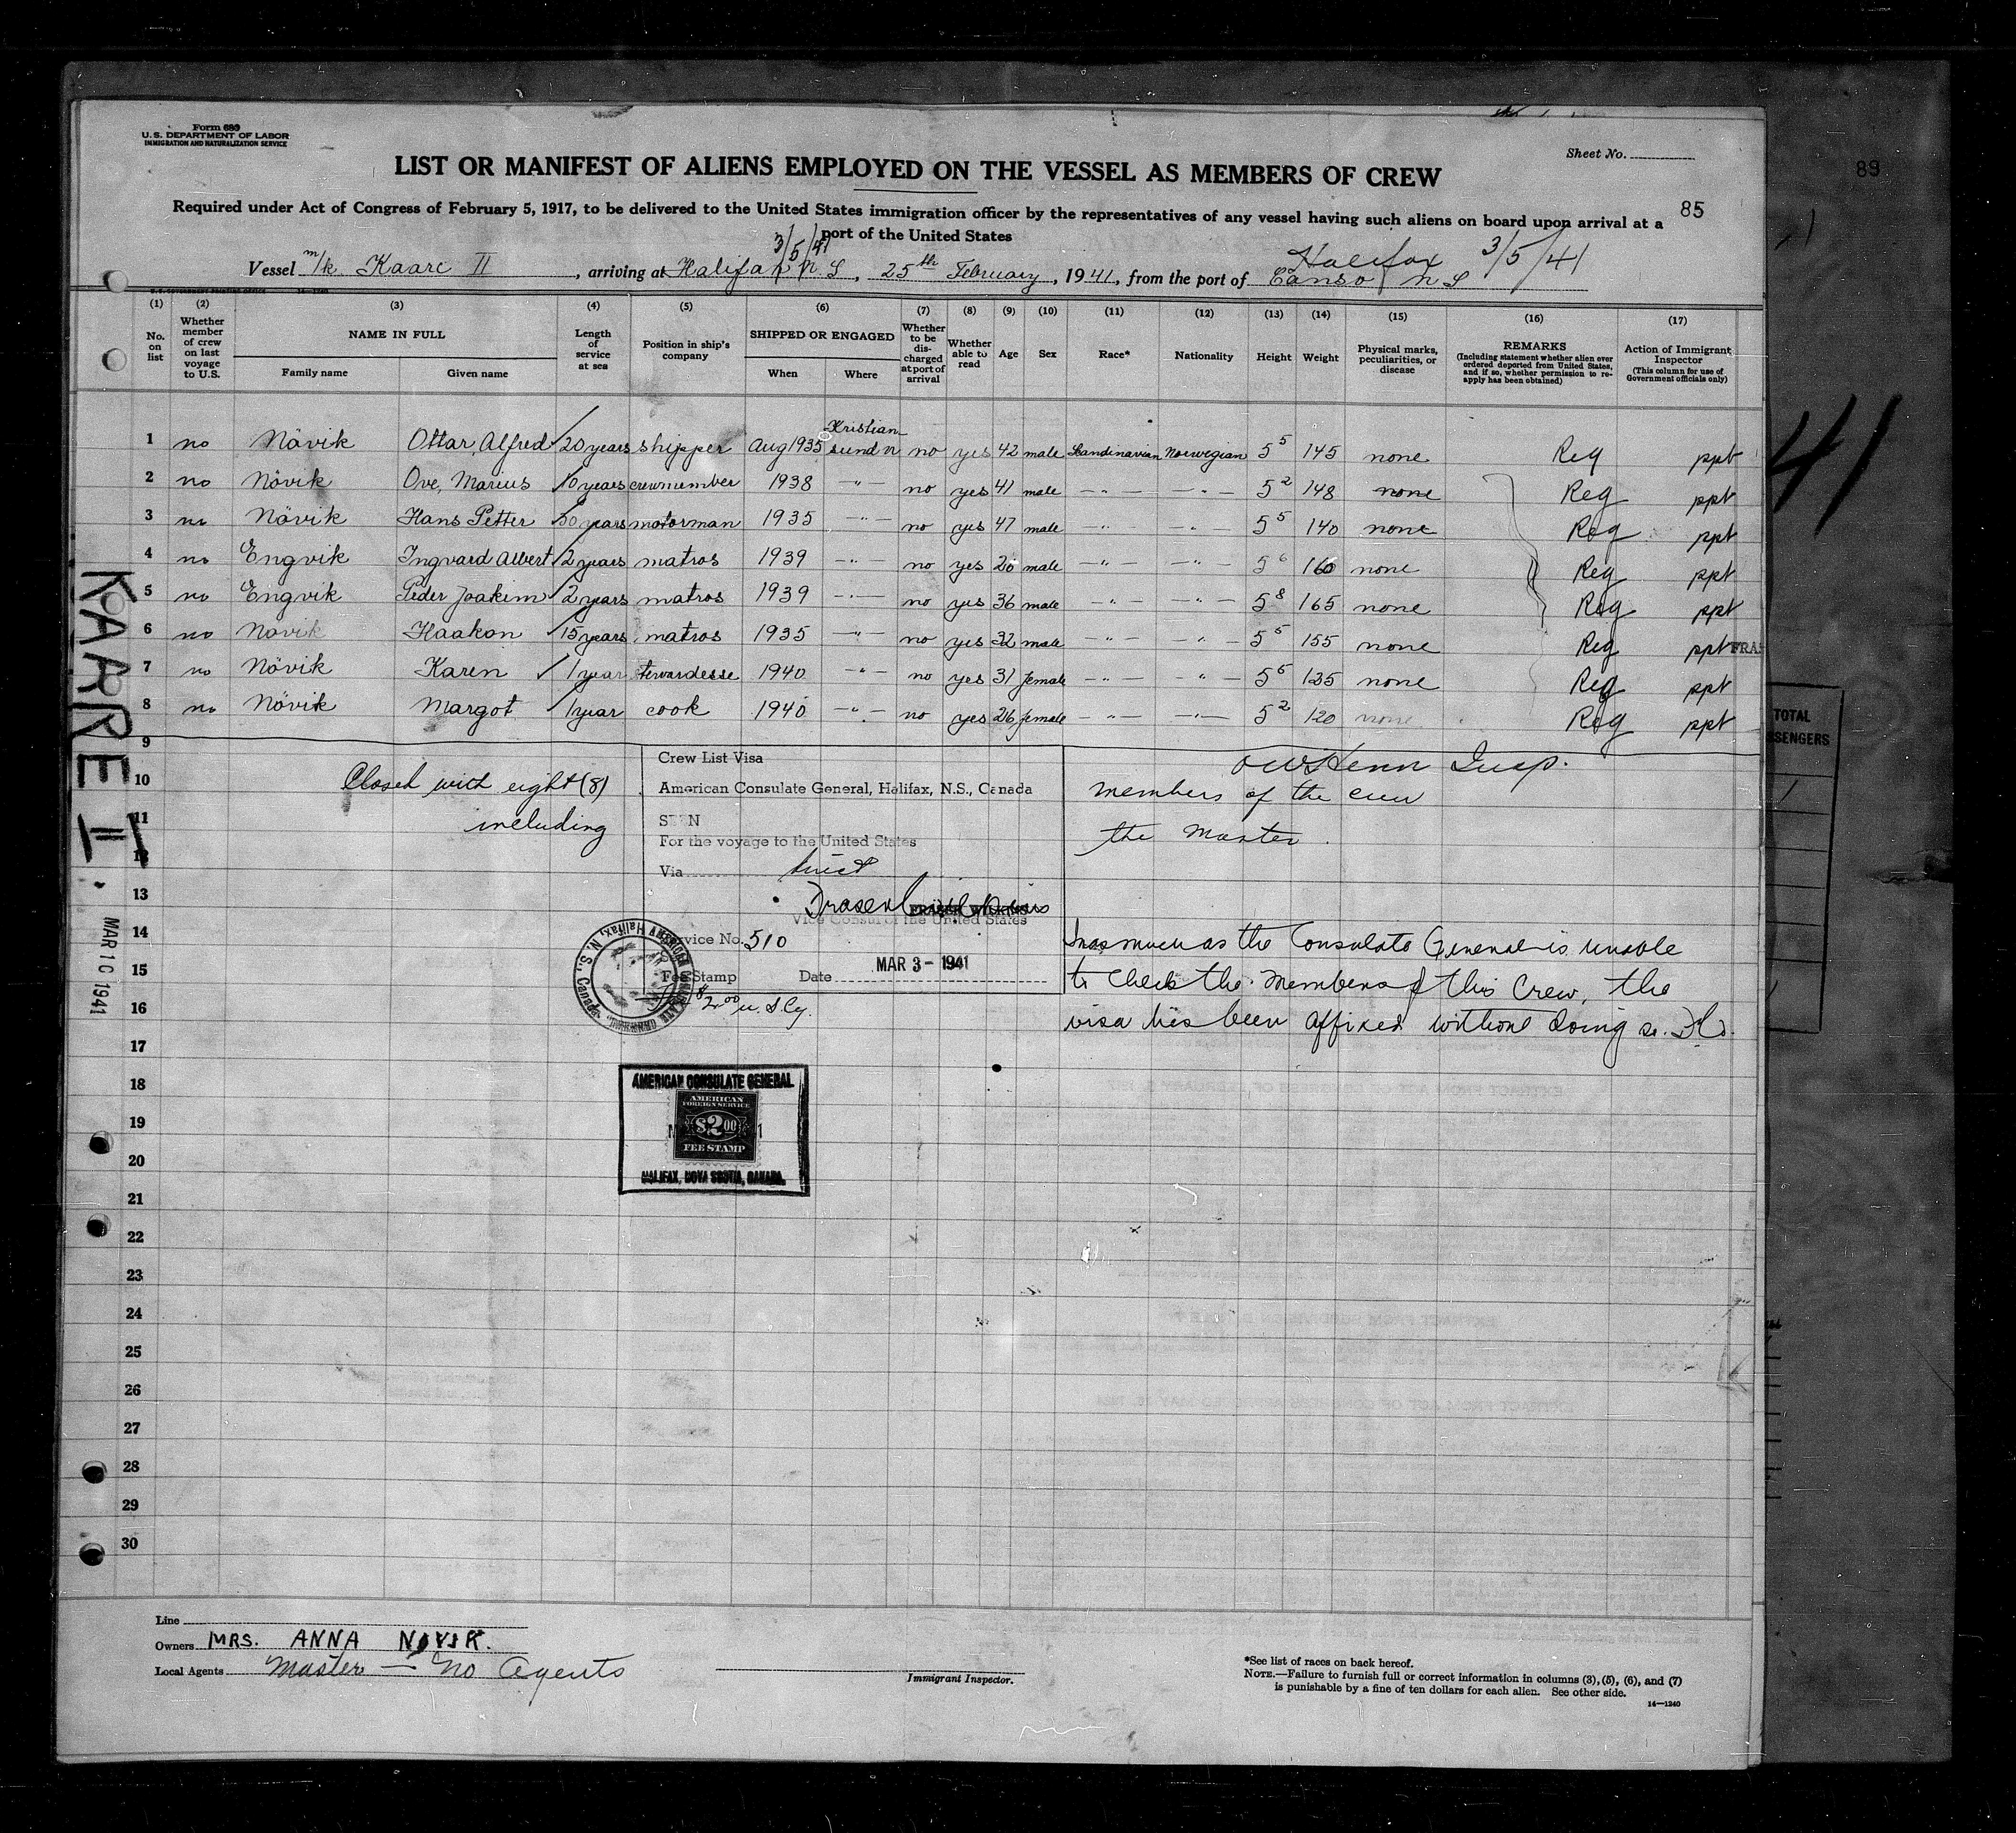 Form 689
U.S. DEPARTMENT OF LABOR
IMMIGRATION AND NATURALIZATION SERVICE
Sheet No.
89
LIST OR MANIFEST OF ALIENS EMPLOYED ON THE VESSEL AS MEMBERS OF CREW
85
Required under Act of Congress of February 5, 1917, to be delivered to the United States immigration officer by the representatives of any vessel having such aliens on board upon arrival at a
port of the United States
3/5/41 Halifax 3/5/41
Vessel m/k Kaare II, arriving at Halifax N S, 25th February, 1941, from the port of Canso N S
(1) (2) (3) (4) (5) (6) (7) (8) (9) (10) (11) (12) (13) (14) (15) (16) (17)
No. on list
Whether member of crew on last voyage to U.S.
NAME IN FULL
Family name
Given name
Length of service at sea
Position in ship's company
SHIPPED OR ENGAGED
When
Where
Whether to be discharged at port of arrival
Whether able to read
Age
Sex
Race*
Nationality
Height
Weight
Physical marks, peculiarities, or disease
REMARKS
(Including statement whether alien ever ordered deported from United States, and if so, whether permission to re-apply has been obtained)
Action of Immigrant Inspector
(This column for use of Government officials only)
1 no Növik Ottar, Alfred 20 years shipper Aug 1935 Kristiansund N no yes 42 male Scandinavian Norwegian 5 5 145 none Reg ppt
2 no Növik Ove, Marius 10 years crewmember 1938 —"— no yes 41 male —"— —"— 5 2 148 none Reg ppt
3 no Növik Hans Petter 30 years motorman 1935 —"— no yes 47 male —"— —"— 5 5 140 none Reg ppt
4 no Engvik Ingvard Albert 2 years matros 1939 —"— no yes 20 male —"— —"— 5 6 160 none Reg ppt
5 no Engvik Peder Joakim 2 years matros 1939 —"— no yes 36 male —"— —"— 5 8 165 none Reg ppt
6 no Növik Haakon 15 years matros 1935 —"— no yes 32 male —"— —"— 5 5 155 none Reg ppt FRAS
7 no Növik Karen 1 year stewardesse 1940 —"— no yes 31 female —"— —"— 5 5 135 none Reg ppt
8 no Növik Margot 1 year cook 1940 —"— no yes 26 female —"— —"— 5 2 120 none Reg ppt
9
10
11
12
13
14
15
16
17
18
19
20
21
22
23
24
25
26
27
28
29
30
Closed with eight (8)
including
Crew List Visa
American Consulate General, Halifax, N.S., Canada
SEEN
For the voyage to the United States
Via direct
FRASER WILKINS
Vice Consul of the United States
Service No. 510
Fee Stamp Date MAR 3 - 1941
$2.00 U.S.Cy.
Insp.
members of the crew
the master
Inasmuch as the Consulate General is unable
to check the members of this crew, the
visa has been affixed without doing so.
AMERICAN CONSULATE GENERAL
AMERICAN
FOREIGN SERVICE
$2.00
FEE STAMP
HALIFAX, NOVA SCOTIA, CANADA.
KAARE II.
MAR 10 1941
41
TOTAL
SSENGERS
Line
Owners MRS. ANNA NOVIK.
Local Agents Master — No Agents
Immigrant Inspector.
*See list of races on back hereof.
NOTE.—Failure to furnish full or correct information in columns (3), (5), (6), and (7)
is punishable by a fine of ten dollars for each alien. See other side.
14—1240